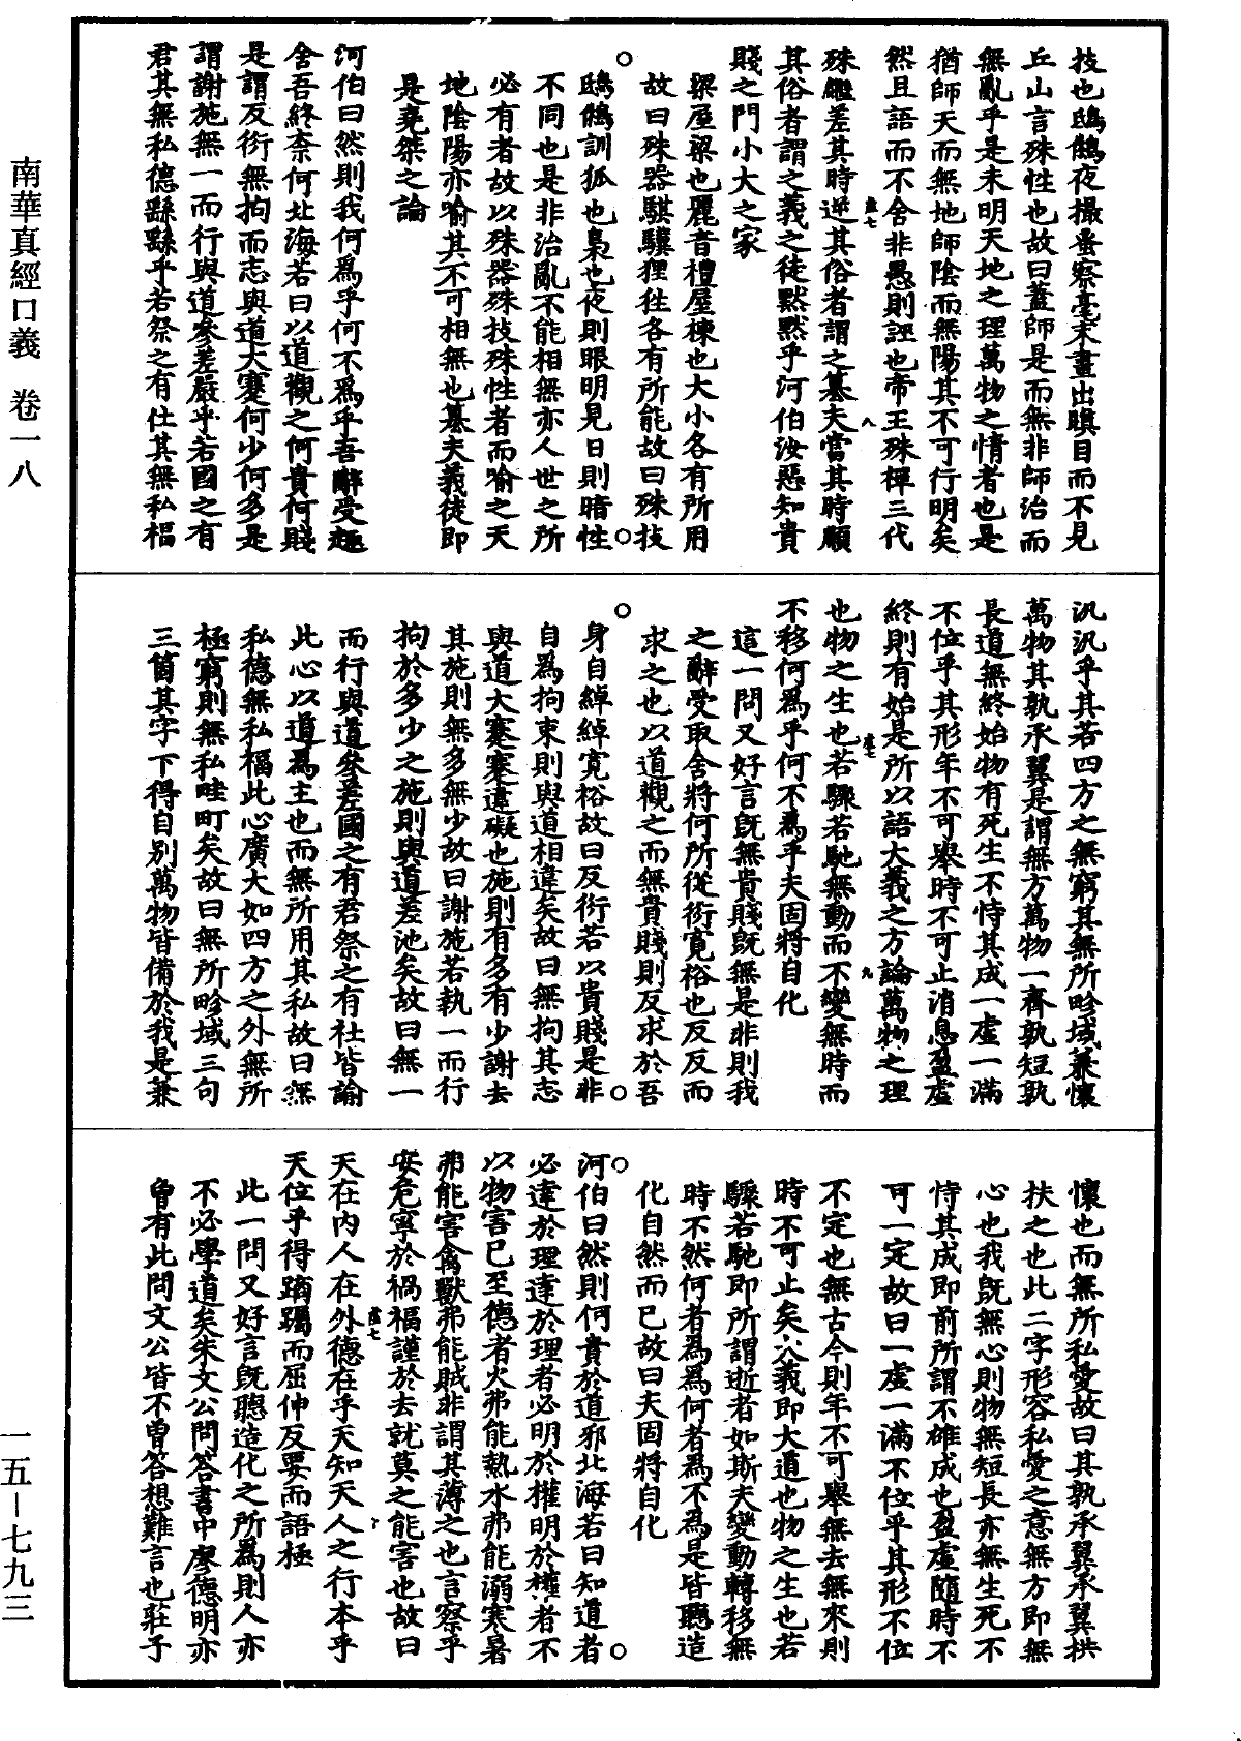 南華真經口義　卷一八
技也鴟鵂夜撮蚤察毫末晝出瞋目而不見
丘山言殊性也故曰蓋師是而無非師治而
無亂乎是未明天地之理萬物之情者也是
猶師天而無地師陰而無陽其不可行明矣
然且語而不舍非愚則誣也帝王殊禪三代
殊繼差其時逆其俗者謂之篡夫當其時順
其俗者謂之義之徒默默乎河伯汝惡知貴
賤之門小大之家
梁屋梁也麗音禮屋棟也大小各有所用
故曰殊器騏驥狸狌各有所能故曰殊技
鴟鵂訓狐也梟也夜則眼明見日則暗性
不同也是非治亂不能相無亦人世之所
必有者故以殊器殊技殊性者而喻之天
地陰陽亦喻其不可相無也篡夫義徒即
是堯桀之論
河伯曰然則我何為乎何不為乎吾辭受趣
舍吾終柰何北海若曰以道觀之何貴何賤
是謂反衍無拘而志與道大蹇何少何多是
謂謝施無一而行與道參差嚴乎若國之有
君其無私德繇繇乎若祭之有社其無私福
汎汎乎其若四方之無窮其無所畛域兼懷
萬物其孰承翼是謂無方萬物一齊孰短孰
長道無終始物有死生不恃其成一虛一滿
不位乎其形年不可舉時不可止消息盈虛
終則有始是所以語大義之方論萬物之理
也物之生也若驟若馳無動而不變無時而
不移何為乎何不為乎夫固將自化
這一問又好言既無貴賤既無是非則我
之辭受取舍將何所從衍寬裕也反反而
求之也以道觀之而無貴賤則反求於吾
身自綽綽寬裕故曰反衍若以貴賤是非
自為拘束則與道相違矣故曰無拘其志
與道大蹇蹇違礙也施則有多有少謝去
其施則無多無少故曰謝施若執一而行
拘於多少之施則與道差池矣故曰無一
而行與道參差國之有君祭之有社皆諭
此心以道為主也而無所用其私故曰無
私德無私福此心廣大如四方之外無所
極窮則無私畦町矣故曰無所畛域三句
三箇其字下得自別萬物皆備於我是兼
懷也而無所私愛故曰其孰承翼承翼拱
扶之也此二字形容私愛之意無方即無
心也我既無心則物無短長亦無生死不
恃其成即前所謂不雄成也盈虛隨時不
可一定故曰一虛一滿不位乎其形不位
不定也無古今則年不可舉無去無來則
時不可止矣大義即大道也物之生也若
驟若馳即所謂逝者如斯夫變動轉移無
時不然何者為為何者為不為是皆聽造
化自然而已故曰夫固將自化
河伯曰然則何貴於道邪北海若曰知道者
必達於理達於理者必明於權明於權者不
以物害己至德者火弗能熱水弗能溺寒暑
弗能害禽獸弗能賊非謂其薄之也言察乎
安危寧於禍福謹於去就莫之能害也故曰
天在內人在外德在乎天知天人之行本乎
天位乎得蹢躅而屈伸反要而語極
此一問又好言既聽造化之所為則人亦
不必學道矣朱文公問答書中廖德明亦
曾有此問文公皆不曾答想難言也莊子
一五—七九三